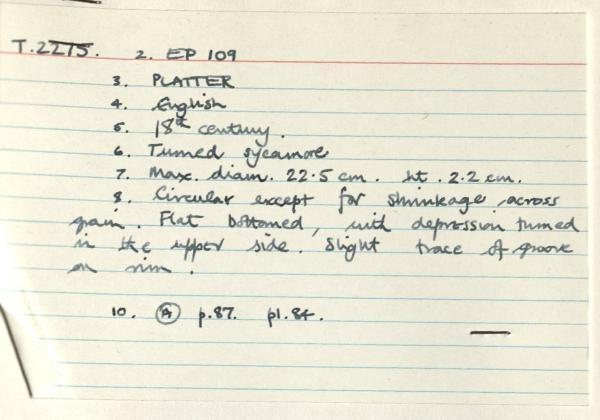 T.2275. 2. EP 109
3. PLATTER
4. English
5. 18th century.
6. Turned sycamore
7. Max. diam. 22.5 cm. ht. 2.2 cm.
8. Circular except for shrinkage across
grain. Flat bottomed, with depression turned
in the upper side. Slight trace of groove
on rim.
10. Ⓐ p.87. pl.84.